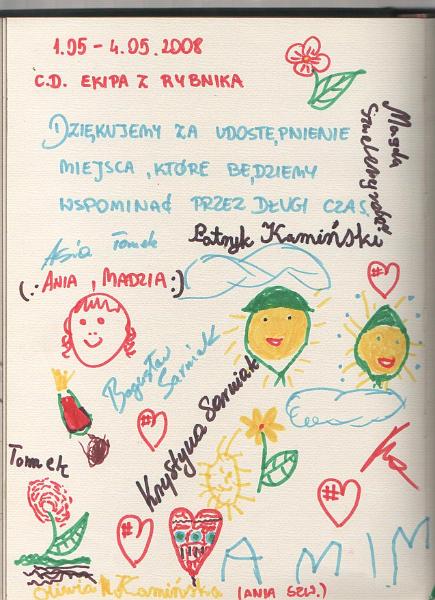 1.05 - 4.05.2008
C.D. EKIPA Z RYBNIKA
DZIĘKUJEMY ZA UDOSTĘPNIENIE
MIEJSCA, KTÓRE BĘDZIEMY
WSPOMINAĆ PRZEZ DŁUGI CZAS.
Magda
Asia Tomek
Patryk Kamiński
(.: ANIA, MADZIA :)
#
Bogusław
Sarniak
Krystyna Sarniak
#
Tomek
#
#
AMIM
Oliwia N. Kamińska
(ANIA SZW.)